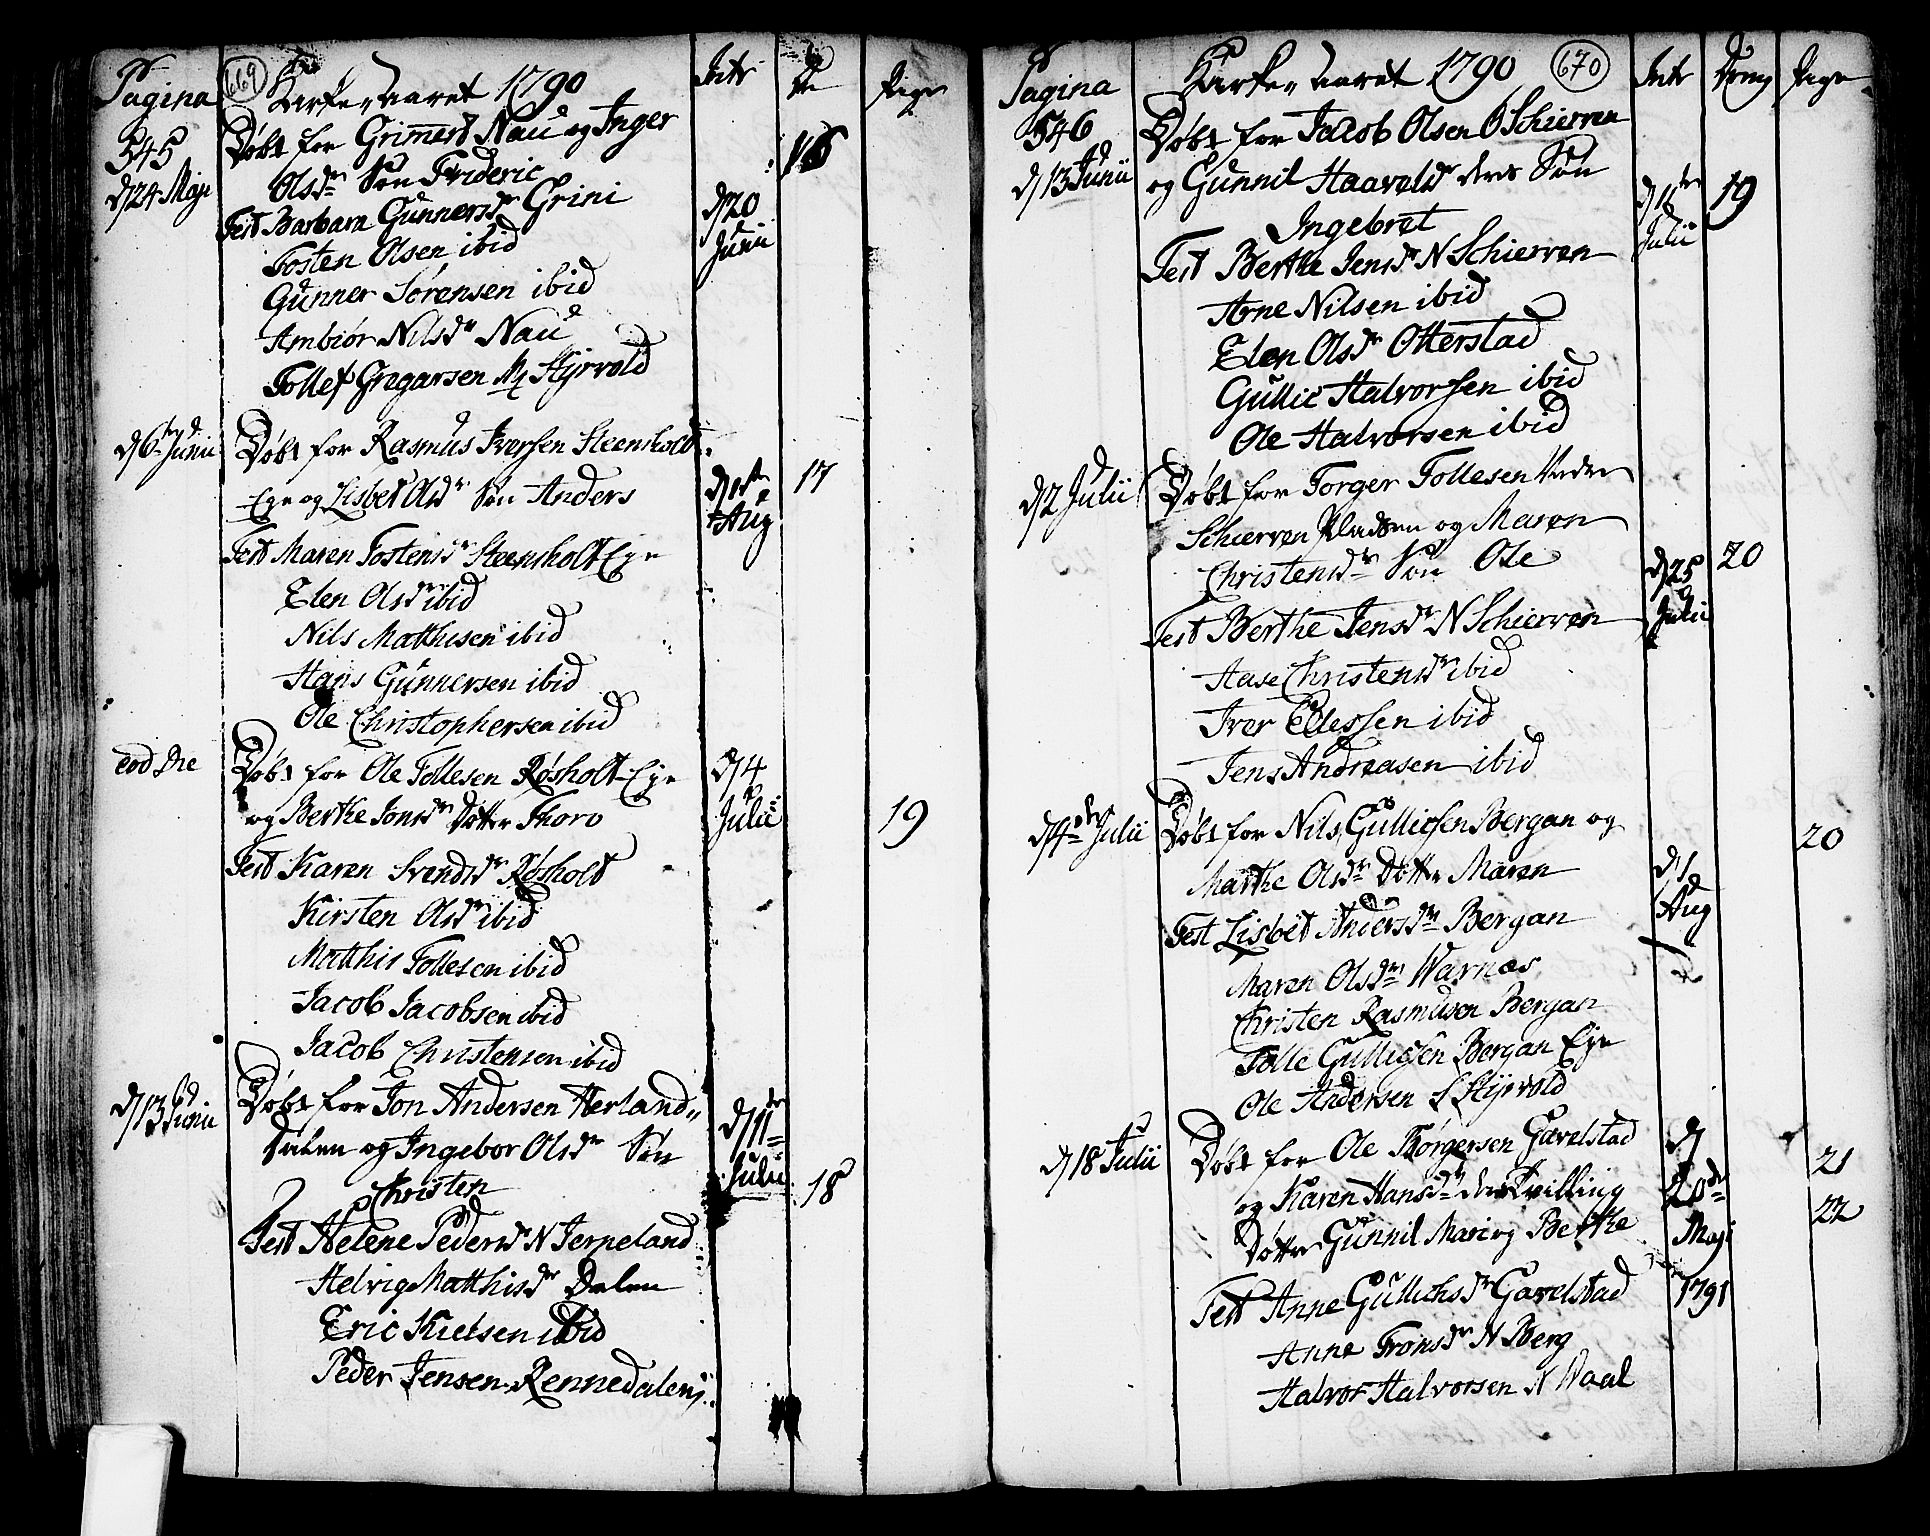 Pagina 669 Kirke-Aaret 1790 Intr Pige
545 Døbt for Grimert Nau og Inger 16
d 24 Maji Olsdr Søn Frideric
Test Barbara Gunnersdr Grini d 20 Junii
Tosten Olsen ibid
Gunner Sørensen ibid
Ambiør Nilsdr Nau
Tollef Gregarsen N Styrvold
d 6te Junii Døbt for Rasmus Iversen Steensholt
Eye og Lisbet Olsdr Søn Anders d 1ste Aug 17
Test Maren Tostensdr Steensholt Eye
Elen Olsdr ibid
Nils Matthisen ibid
Hans Gunnersen ibid
Ole Christophersen ibid
eod Die Døbt for Ole Tollesen Røsholt Eye d 4 Julii
og Berthe Jonsdr Dotter Thoro 19
Test Karen Svendsdr Røsholt
Kirsten Olsdr ibid
Matthis Tollesen ibid
Jacob Jacobsen ibid
Jacob Christensen ibid
d 13 Junii Døbt for Jon Andersen Herland„ d 11te Julii
Dalen og Ingebor Olsdr Søn
Christen 18
Test Helene Pedersdr N Jerneland
Helvig Matthisdr Dalen
Eric Kielsen ibid
Peder Jensen Rennedalen
Pagina Kirke-Aaret 1790 670 Intr Dreng Pige
546 Døbt for Jacob Olsen Ø Schierven
d 13 Junii og Gunnil Haavoldsdr deres Søn d 11te Julii 19
Ingebret
Test Berthe Jensdr N Schierven
Arne Nilsen ibid
Elen Olsdr Otterstad
Gullic Halvorsen ibid
Ole Halvorsen ibid
d 2 Julii Døbt for Torger Tollesen Nedre
Schierven Pladsen og Maren
Christensdr Søn Ole d 25 Julii 20
Test Berthe Jensdr N Schierven
Aase Christensdr ibid
Iver Ellessen ibid
Jens Andreasen ibid
d 4de Julii Døbt for Nils Gullicsen Bergan og 20
Marthe Olsdr Dotter Maren d 1 Aug
Test Lisbet Andersdr Bergan
Maren Olsdr Warnæs
Christen Rasmusen Bergan
Tolle Gullicsen Bergan Eye
Ole Andersen S Styrvold
d 18 Julii Døbt for Ole Børgersen Gavelstad d 20de Maji 1791 21
og Karen Hansdr deres Tvilling 22
Døttre Gunnil Mari og Berthe
Test Anne Gullichsdr Gavelstad
Anne Tronsdr N Berg
Halvor Halvorsen N Waal